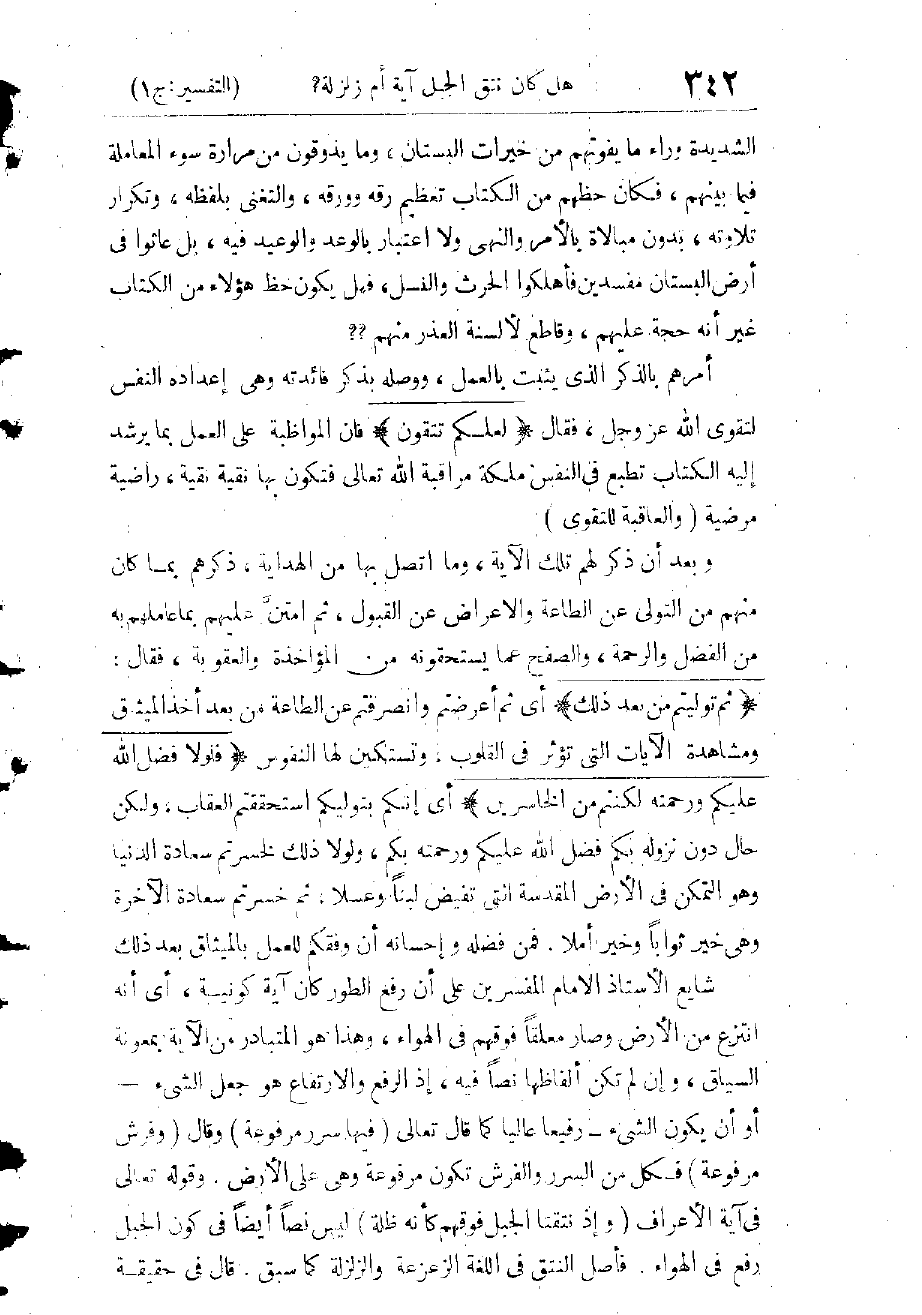 ٣٤٢ هل كان نتق الجبل آية أم زلزلة؟ (التفسير: ج ١)
الشديدة وراء ما يفوتهم من خيرات البستان ، وما يذوقون من مرارة سوء المعاملة
فيما بينهم ، فكان حظهم من الكتاب تعظيم رقه وورقه ، والتغنى بلفظه ، وتكرار
تلاوته ، بدون مبالاة بالأمر والنهى ولا اعتبار بالوعد والوعيد فيه ، بل عاثوا فى
أرض البستان مفسدين فأهلكوا الحرث والنسل، فهل يكون حظ هؤلاء من الكتاب
غير أنه حجة عليهم ، وقاطع لألسنة العذر منهم ؟؟
أمرهم بالذكر الذى يثبت بالعمل ، ووصله بذكر فائدته وهى إعداده النفس
لتقوى الله عز وجل ، فقال ﴿ لعلكم تتقون ﴾ فان المواظبة على العمل بما يرشد
إليه الكتاب تطبع فى النفس ملكة مراقبة الله تعالى فتكون بها تقية نقية ، راضية
مرضية ( والعاقبة للتقوى )
و بعد أن ذكر لهم تلك الآية ، وما اتصل بها من الهداية ، ذكرهم بمـا كان
منهم من التولى عن الطاعة والاعراض عن القبول ، ثم امتنَّ عليهم بماعاملهم به
من الفضل والرحمة ، والصفح عما يستحقونه من المؤاخذة والعقوبة ، فقال :
﴿ ثم توليتم من بعد ذلك﴾ أى ثم أعرضتم وانصرفتم عن الطاعة من بعد أخذ الميثاق
ومشاهدة الآيات التى تؤثر فى القلوب ، وتستكين لها النفوس ﴿ فلولا فضل الله
عليكم ورحمته لكنتم من الخاسرين ﴾ أى إنكم بتوليكم استحققتم العقاب ، ولكن
حال دون نزوله بكم فضل الله عليكم ورحمته بكم ، ولولا ذلك لخسرتم سعادة الدنيا
وهو التمكن فى الأرض المقدسة التى تفيض لبناً وعسلا ، ثم خسرتم سعادة الآخرة
وهى خير ثواباً وخير أملا . فمن فضله و إحسانه أن وفقكم للعمل بالميثاق بعد ذلك
شايع الأستاذ الامام المفسرين على أن رفع الطور كان آية كونيـة ، أى أنه
انتزع من الأرض وصار معلقاً فوقهم فى الهواء ، وهذا هو المتبادر من الآية بمعونة
السياق ، و إن لم تكن ألفاظها نصاً فيه ، إذ الرفع والارتفاع هو جعل الشىء —
أو أن يكون الشىء — رفيعا عاليا كما قال تعالى ( فيها سرر مرفوعة ) وقال ( وفرش
مرفوعة ) فكل من السرر والفرش تكون مرفوعة وهى على الأرض . وقوله تعالى
فى آية الأعراف ( و إذ نتقنا الجبل فوقهم كأنه ظلة ) ليس نصاً أيضاً فى كون الجبل
رفع فى الهواء . فأصل النتق فى اللغة الزعزعة والزلزلة كما سبق . قال فى حقيقـة